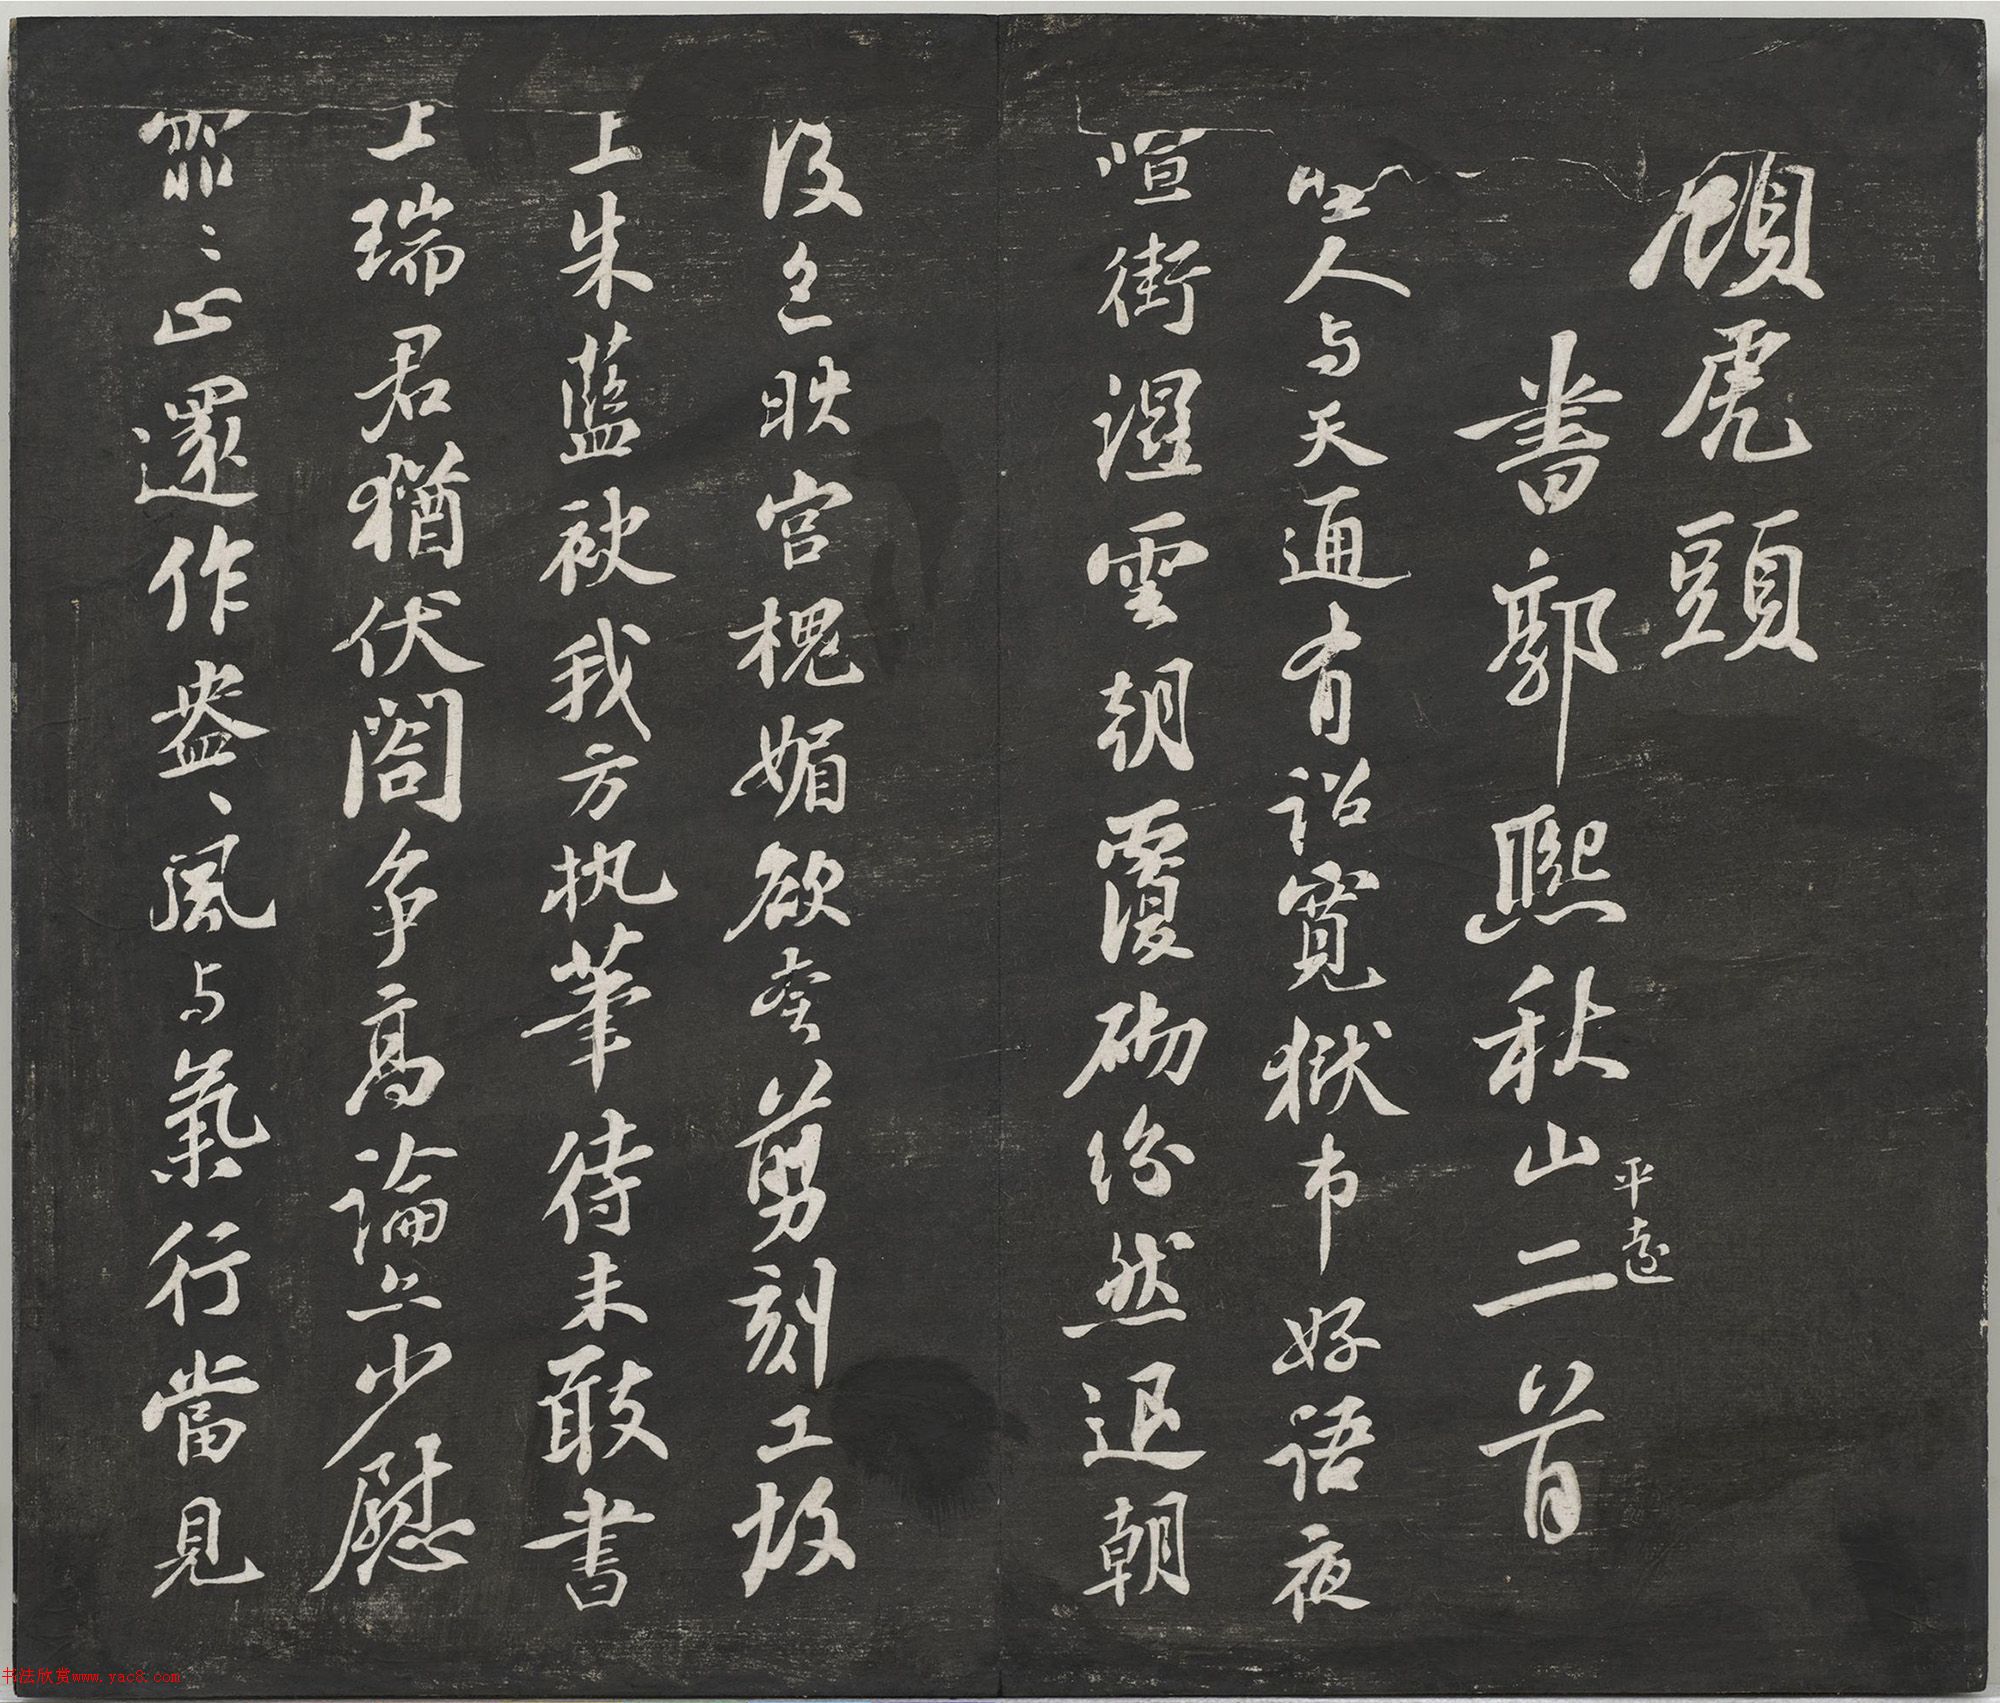 顧虎頭
書郭熙秋山二首 平遠
聖人与天通有詔寬獄市好語夜
喧街濕雲朝覆砌紛然退朝
後色映宮槐媚欲夸剪刻工故
上朱藍袂我方执筆待未敢書
上瑞君猶伏閤爭高論亦少慰
霏〻止還作盎〻風与氣行當見
书法欣赏www.yac8.com